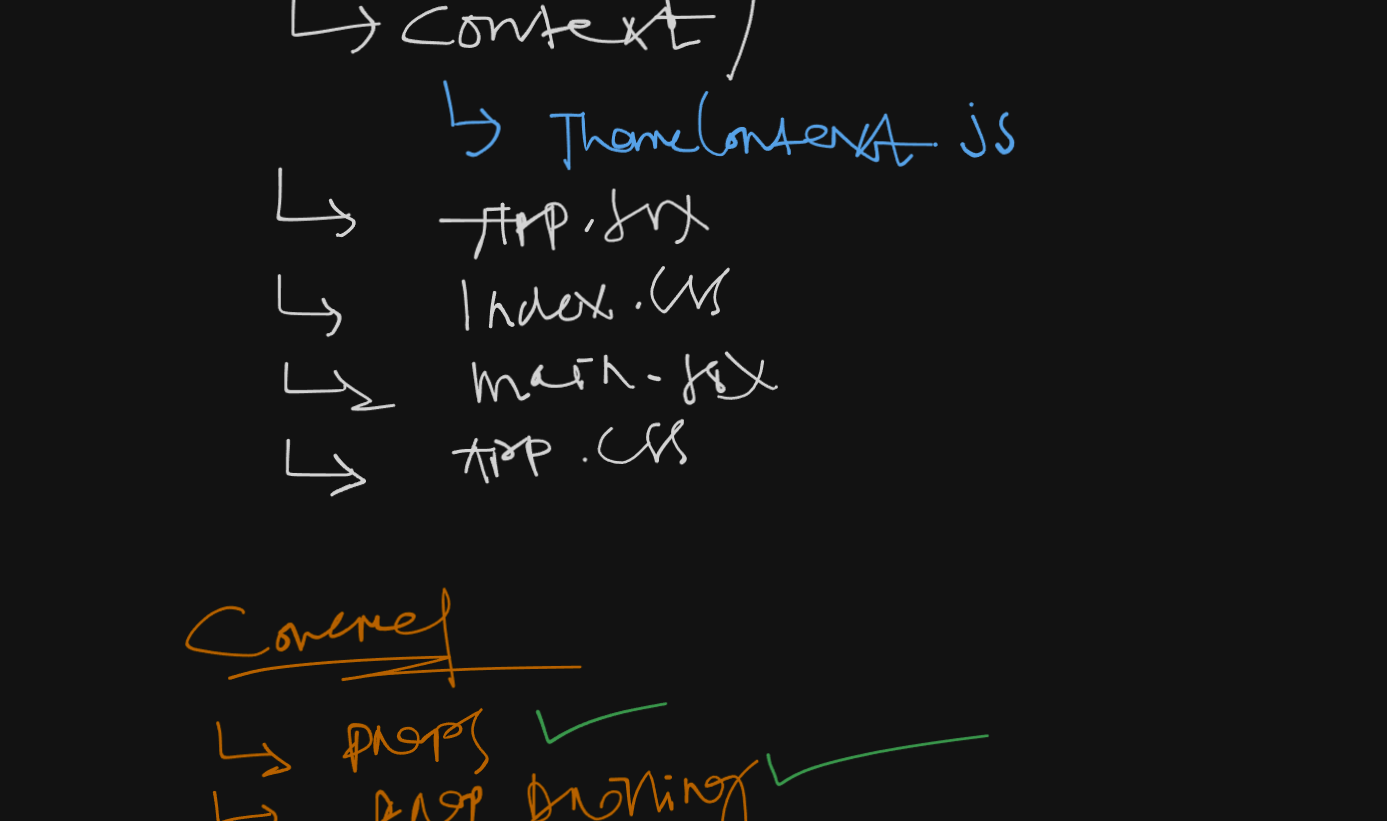 Context/
ThemeContext.js
App.jsx
Index.css
main.jsx
App.css
Covered
props
prop Drilling